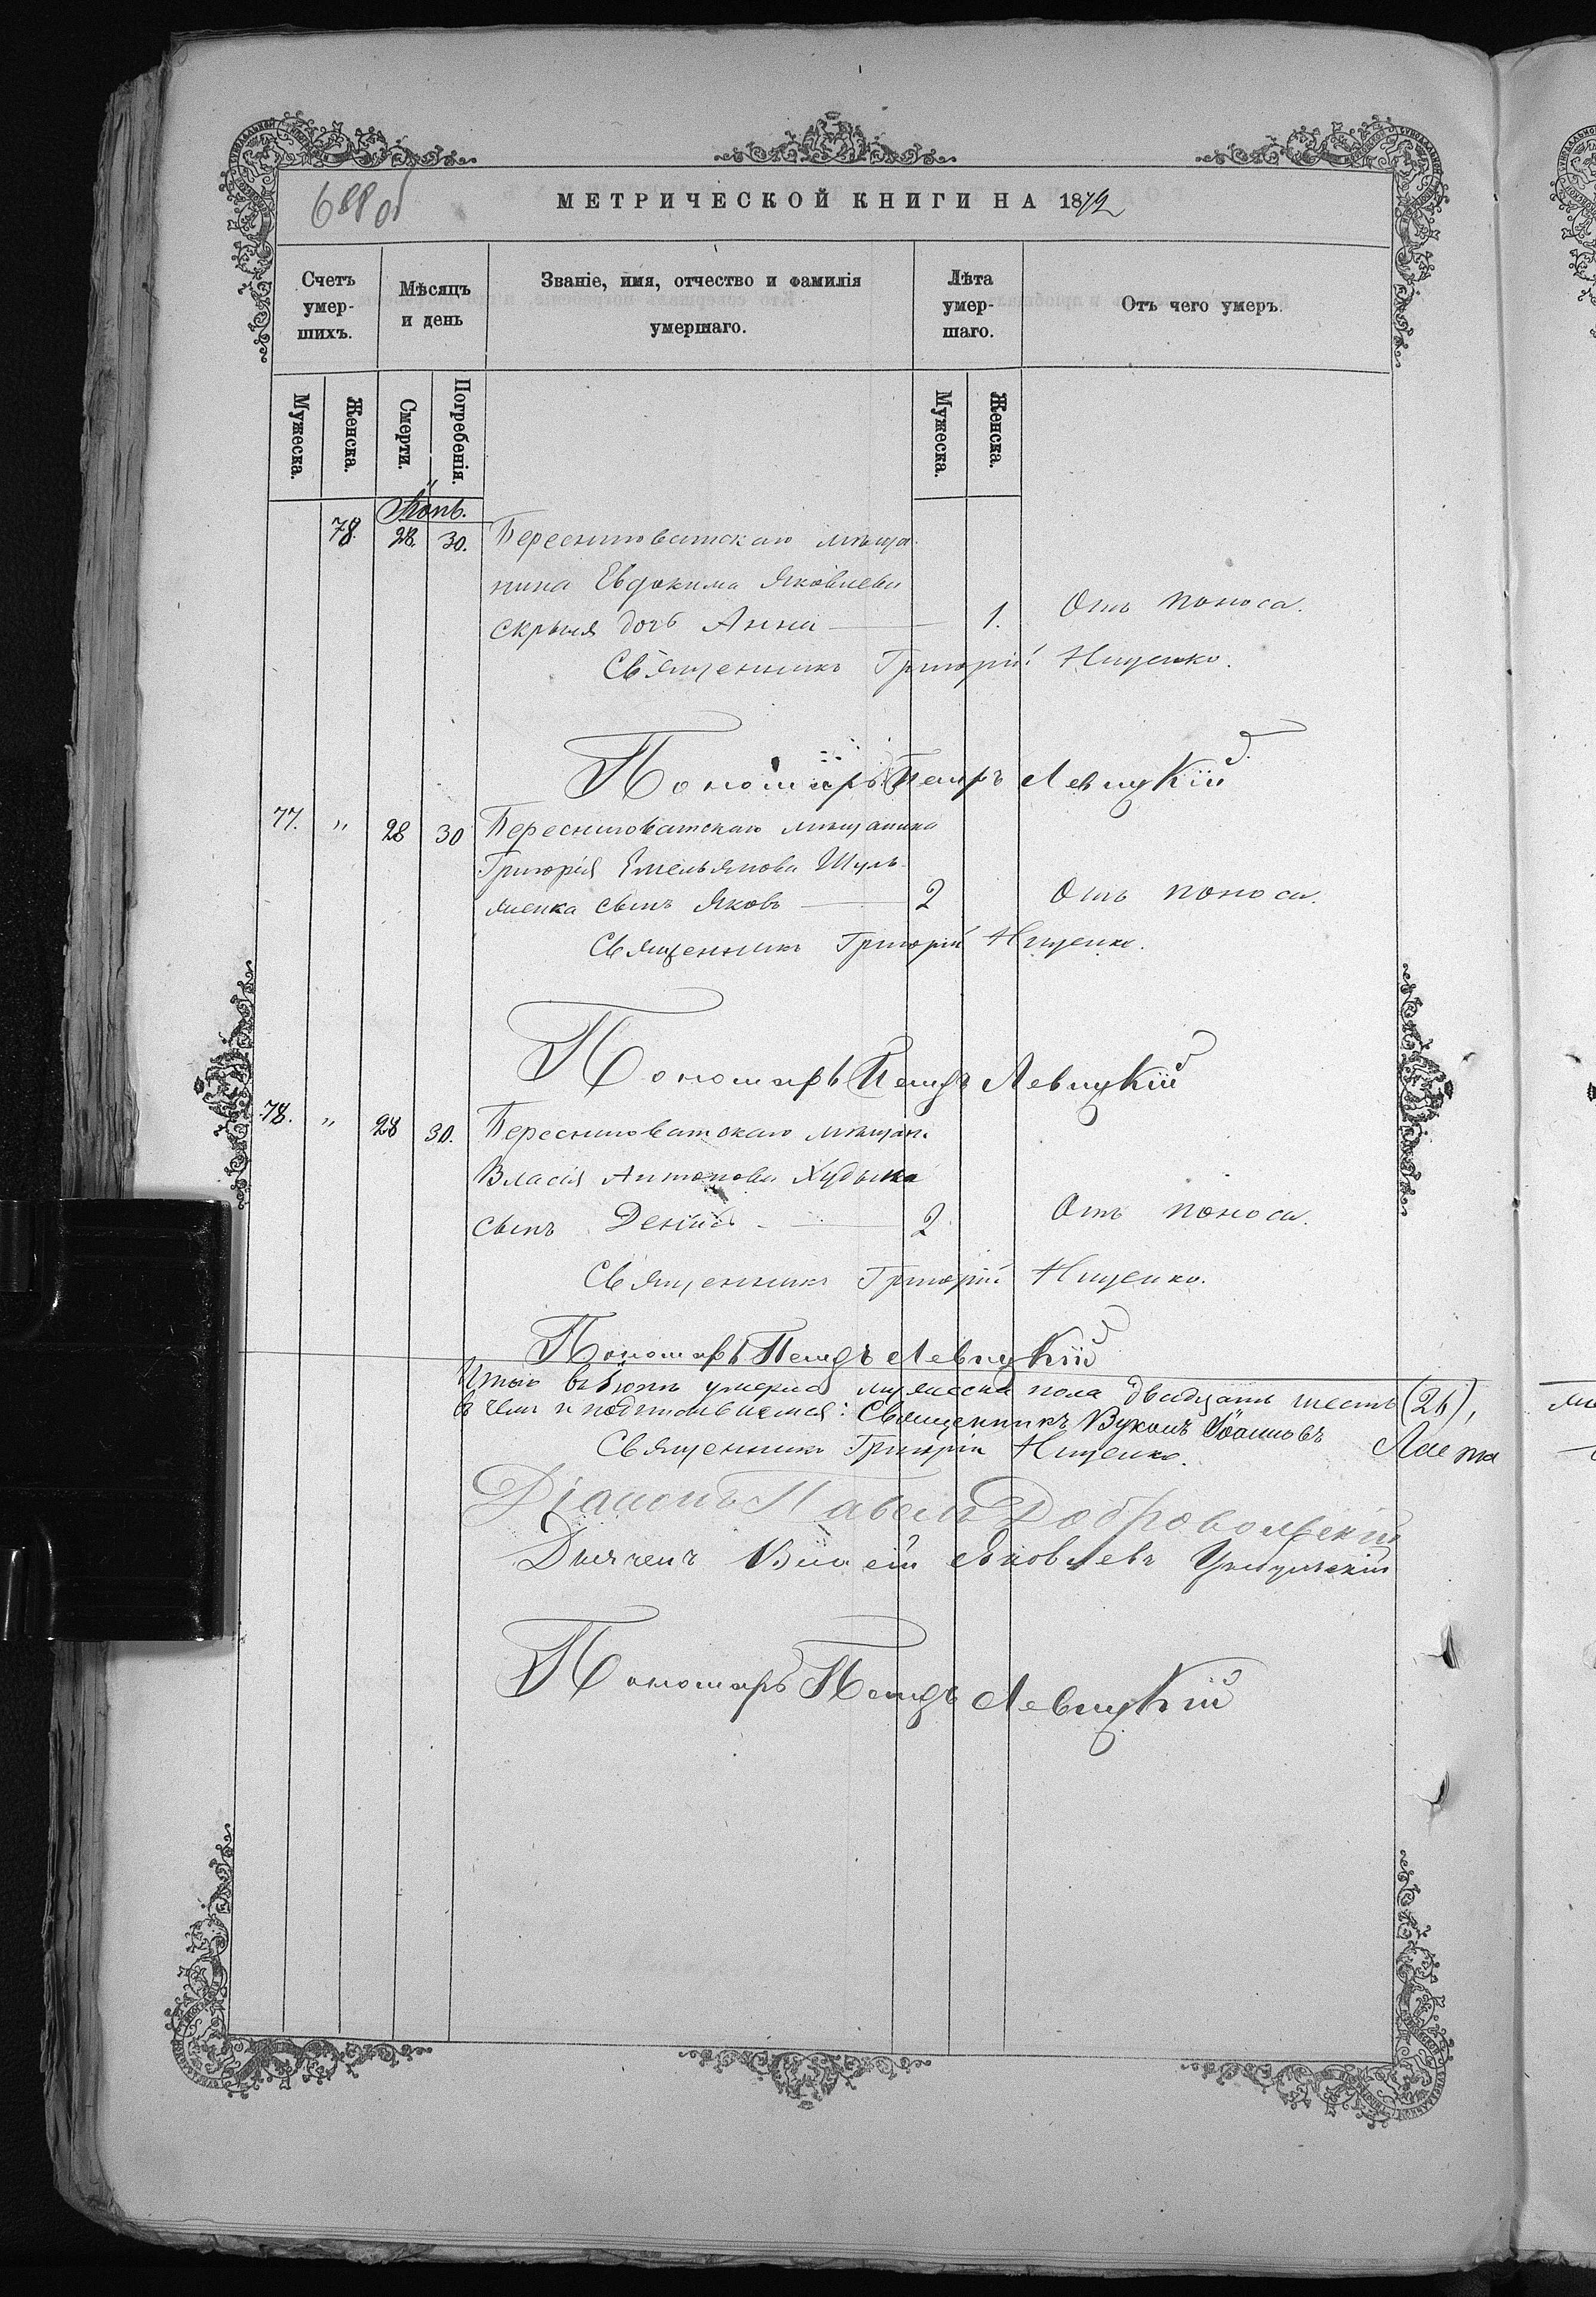 688 об
МЕТРИЧЕСКОЙ КНИГИ НА 1872
Счетъ умер-шихъ.
Мѣсяцъ и день
Званіе, имя, отчество и фамилія умершаго.
Лѣта умер-шаго.
Отъ чего умеръ.
Мужеска.
Женска.
Смерти.
Погребенія.
Мужеска.
Женска.
Іюнь.
78. 28. 30. Бересниговатскаго мѣща-
нина Евдокима Яковлева
скрыля дочь Анна — 1. Отъ поноса.
Священникъ Григорій Нищенко.
Пономарь Петръ Левицкій
77. " 28 30 Бересниговатскаго мѣщанина
Григорія Емельянова Шуль-
женка сынъ Яковъ — 2 Отъ поноса.
Священникъ Григорій Нищенко.
Пономарь Петръ Левицкій
78. " 28 30. Бересниговатскаго мѣщан.
Власія Антонова
сынъ Денисъ — 2 Отъ поноса.
Священникъ Григорій Нищенко.
Пономарь Петръ Левицкій
Итого въ Іюнѣ умерло мужеска пола двадцать шесть (26),
въ чемъ и подписываемся: Священникъ Вуколъ Іоанновъ
Священникъ Григорій Нищенко.
Діаконъ Павелъ Добровольскій
Дьячекъ Яковлевъ
Пономарь Петръ Левицкій